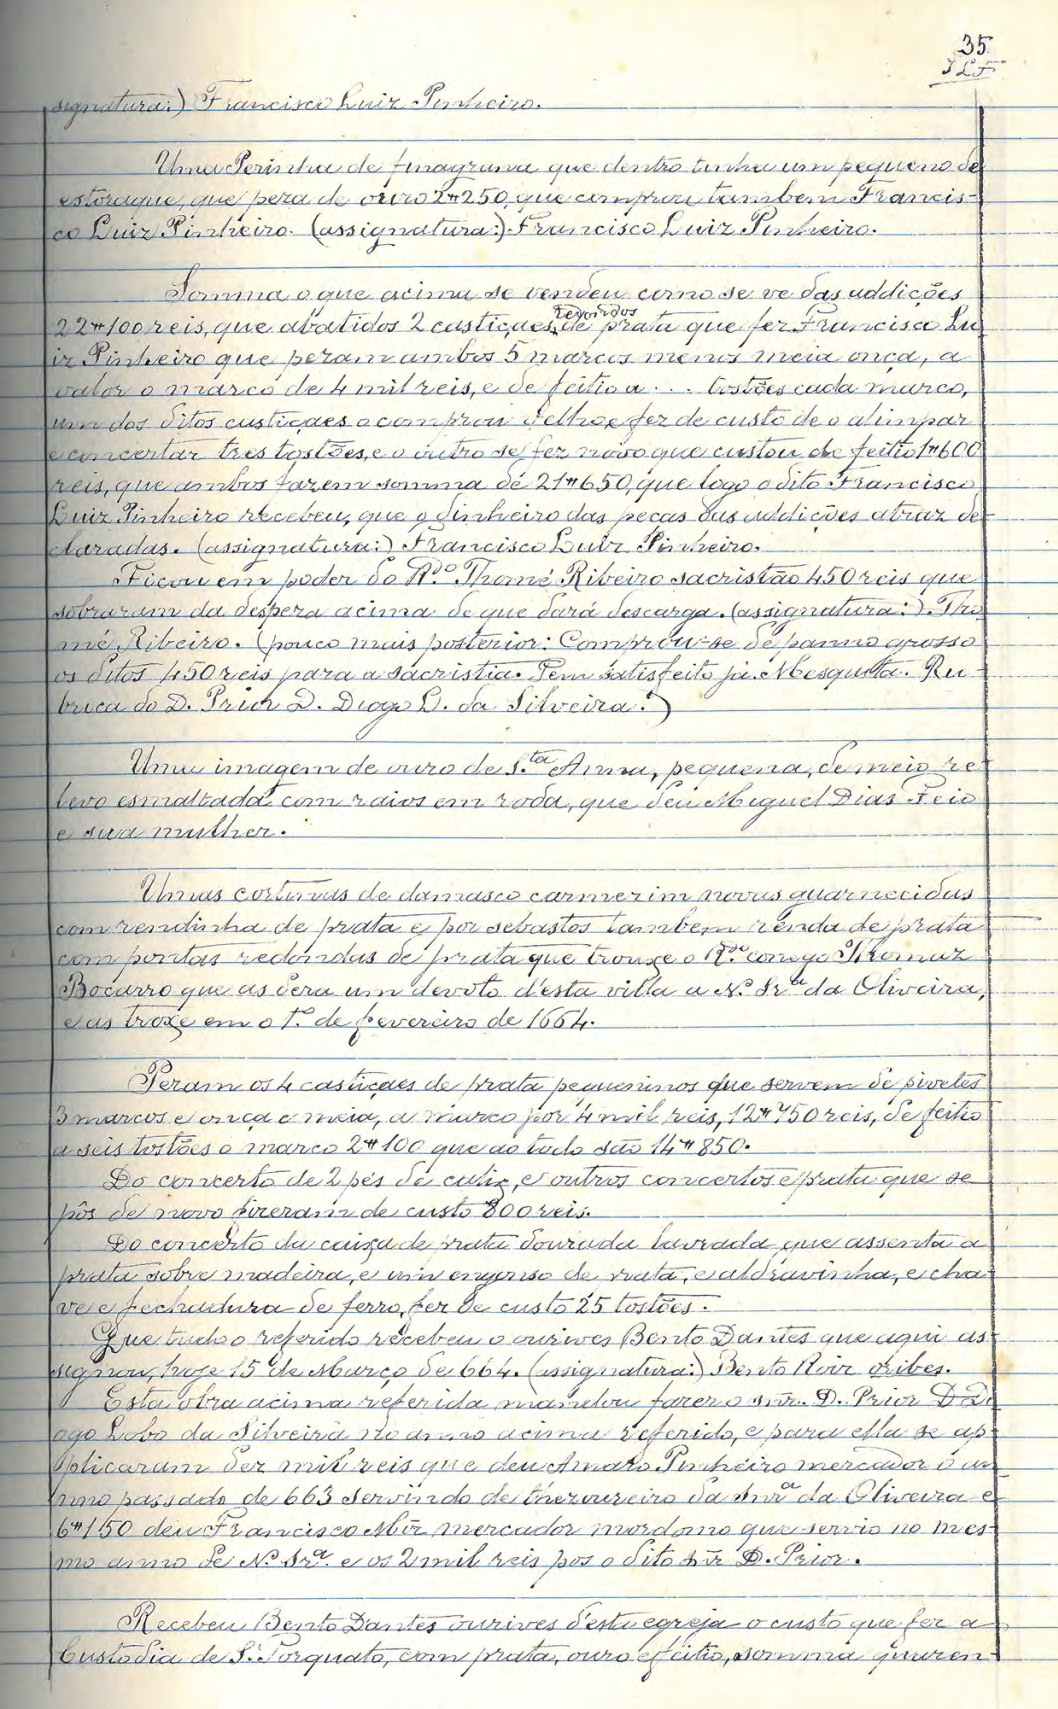 35
J L F
signatura:) Francisco Luiz Pinheiro.
Uma Perinha de finagrana que dentro tinha um pequeno de
estoraque, que peza de ouro 2$250, que comprou tambem Francis-
co Luiz Pinheiro. (assignatura:) Francisco Luiz Pinheiro.
Somma o que acima se vendeu como se ve das addições
22$100 reis, que abatidos 2 castiçaes de prata que fez Francisco Lu-
redondos
iz Pinheiro que pezam ambos 5 marcos menos meia onça, a
valor o marco de 4 mil reis, e de feitio a ... tostões cada marco,
um dos ditos castiçaes o comprou velho e fez de custo de o alimpar
e concertar tres tostões, e o outro se fez novo que custou de feitio 1$600
reis, que ambos fazem somma de 21$650, que logo o dito Francisco
Luiz Pinheiro recebeu, que o dinheiro das peças das addições atraz de-
claradas. (assignatura:) Francisco Luiz Pinheiro.
Ficou em poder do R.do Thomé Ribeiro sacristão 450 reis que
sobraram da despeza acima de que dará descarga. (assignatura:) Tho-
mé Ribeiro. (pouco mais posterior: Comprou-se de panno grosso
os ditos 450 reis para a sacristia. Tem satisfeito já. Mesquita. Ru-
brica do D. Prior D. Diogo L. da Silveira.)
Uma imagem de ouro de S.ta Anna, pequena, de meio re-
levo esmaltada com raios em roda, que deu Miguel Dias Feio
e sua mulher.
Umas cortinas de damasco carmezim novas guarnecidas
com rendinha de prata e por sebastos tambem renda de prata
com pontas redondas de prata que trouxe o R.do conego Thomaz
Bocarro que as dera um devoto d'esta villa a N.ª Sr.ª da Oliveira,
e as troxe em o 1.º de fevereiro de 1664.
Pezam os 4 castiçaes de prata pequeninos que servem de pivetes
3 marcos e onça e meia, a marco por 4 mil reis, 12$750 reis, de feitio
a seis tostões o marco 2$100 que ao todo são 14$850.
Do concerto de 2 pés de calix, e outros concertos e prata que se
pôs de novo fizeram de custo 800 reis.
Do concerto da caixa de prata dourada lavrada que assenta a
prata sobre madeira, e um engonso de prata, e aldravinha, e cha-
ve e fechadura de ferro, fez de custo 25 tostões.
Que tudo o referido recebeu o ourives Bento Dantes que aqui as-
signou, hoje 15 de Março de 664. (assignatura:) Bento Roiz oribes.
Esta obra acima referida mandou fazer o snr. D. Prior D. Di-
ogo Lobo da Silveira no anno acima referido, e para ella se ap-
plicaram dez mil reis que deu Amaro Pinheiro mercador o an-
no passado de 663 servindo de thezoureiro da Snr.ª da Oliveira e
6$150 deu Francisco Miz mercador mordomo que servio no mes-
mo anno de N.ª Sr.ª e os 2 mil reis pos o dito sñr D. Prior.
Recebeu Bento Dantes ourives d'esta egreja o custo que fez a
Custodia de S. Torquato, com prata, ouro e feitio, somma quaren-